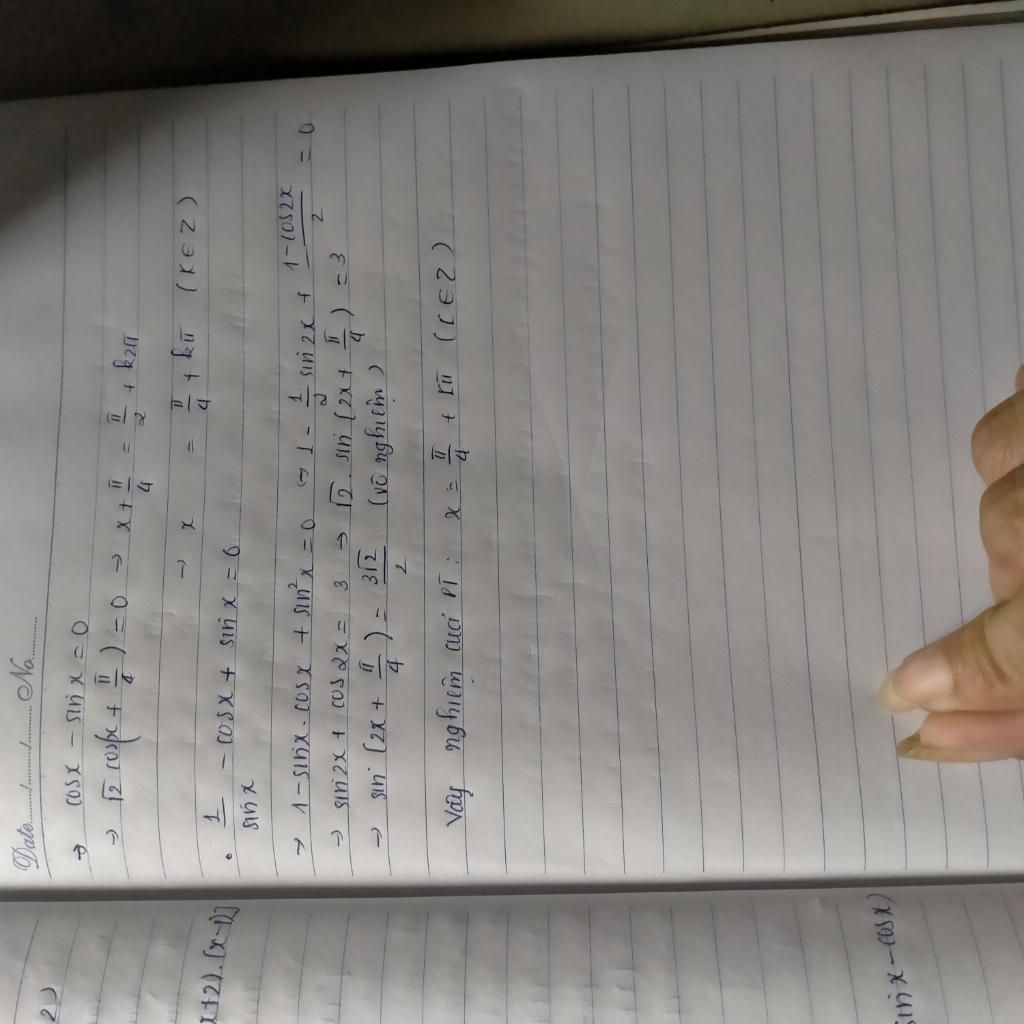 Date....../....../...... No..............
→ cosx − sinx = 0
→ √2 cos(x + π/4) = 0 → x + π/4 = π/2 + k2π
→ x = π/4 + kπ (k ∈ Z)
• 1/sinx − cosx + sinx = 0
→ 1 − sinx . cosx + sin²x = 0 → 1 − 1/2 sin2x + (1 − cos2x)/2 = 0
→ sin2x + cos2x = 3 → √2 . sin (2x + π/4) = 3
→ sin (2x + π/4) = 3√2/2 (vô nghiệm)
Vậy nghiệm của PT : x = π/4 + kπ (k ∈ Z)
x+2).(x−1)]
sinx − cosx)